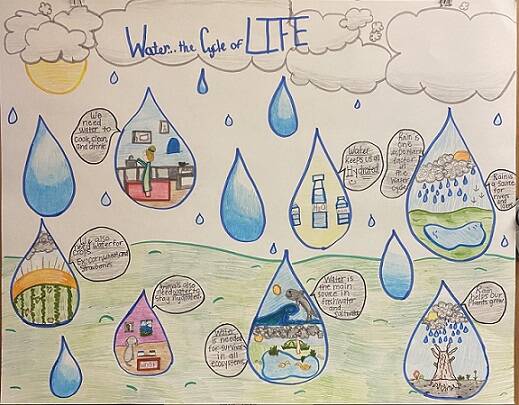 Water... the Cycle of LIFE
We
need
water to
cook, clean,
and drink
Water
keeps us all
Hydrated
H2O
Rain is
one
important
factor
of the
water
cycle
Rain is
a source
for
rivers
and
We also
need water for
crops
Ex: Corn, wheat, and
strawberries
Animals also
need water to
stay hydrated.
Water
is needed
for survival
in all
ecosystems
Water is
the main
source in
freshwater
and
saltwater
Rain
helps our
plants grow